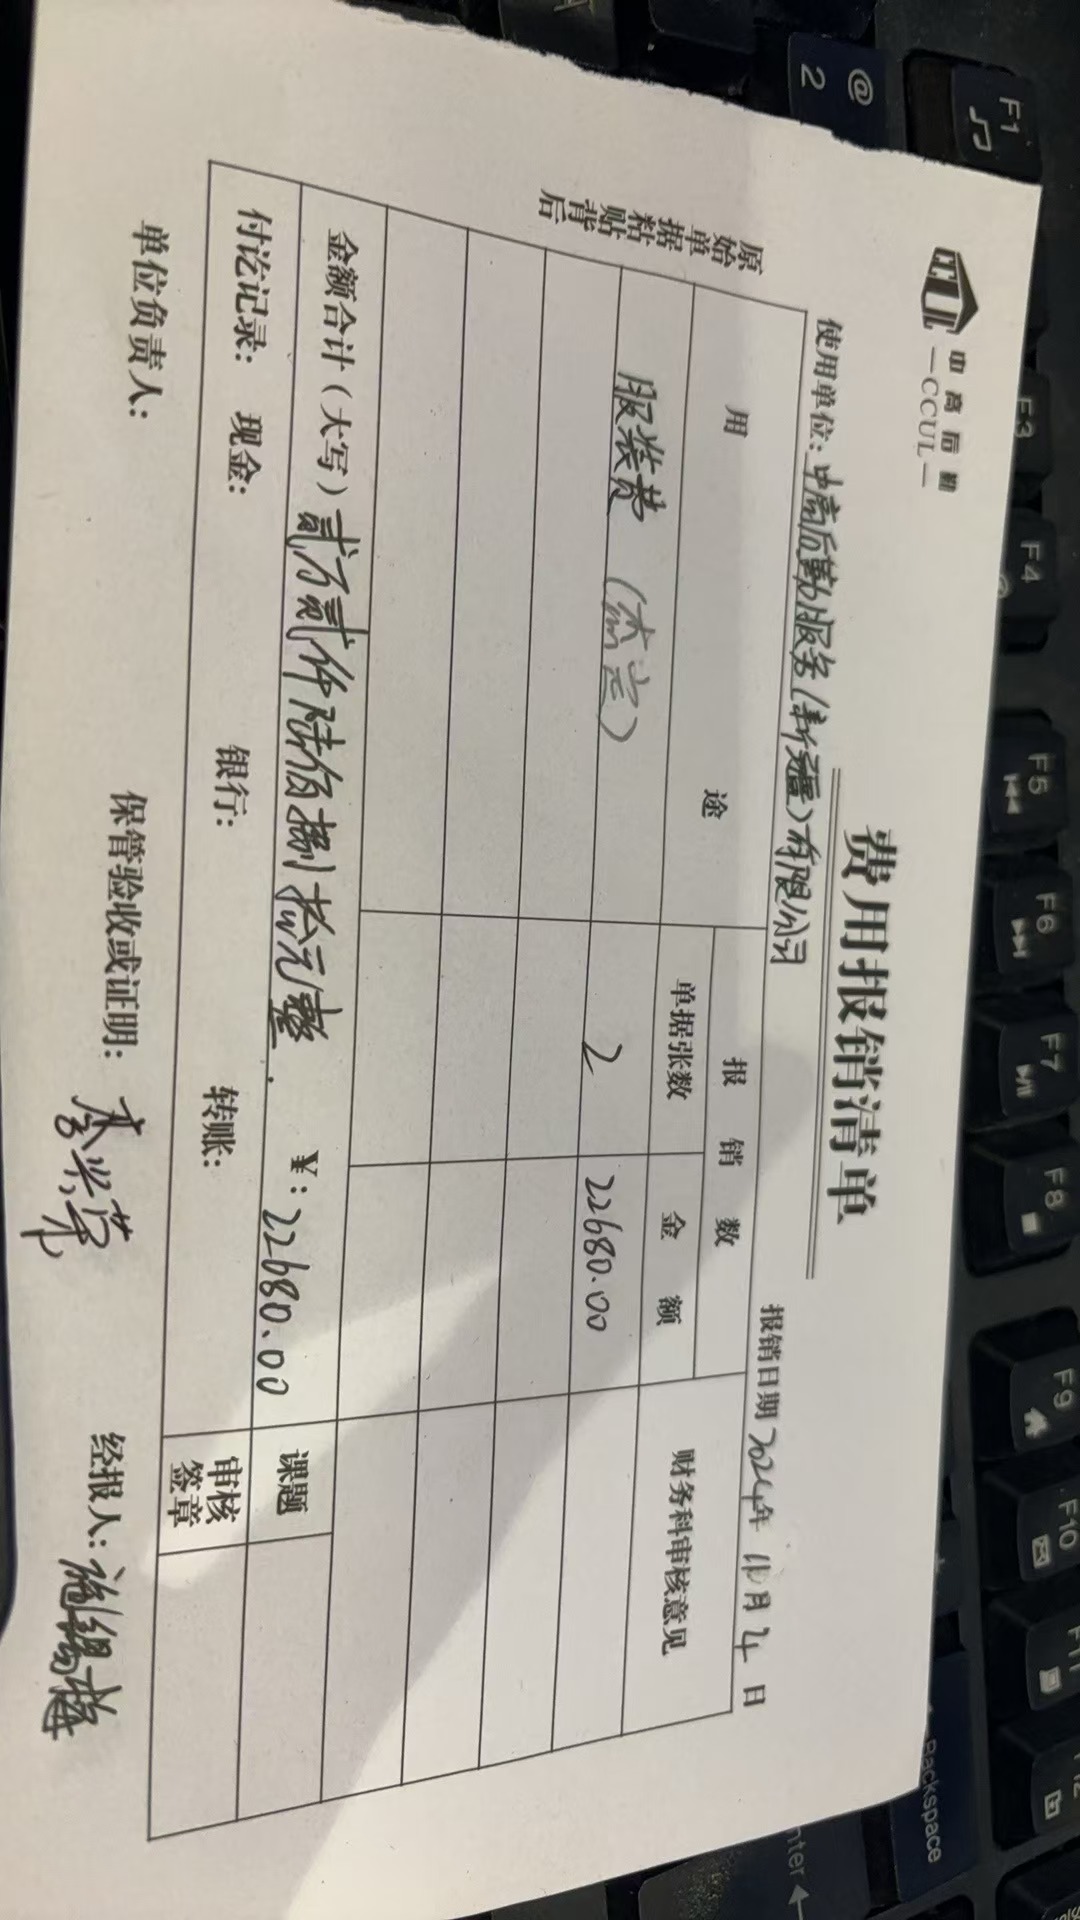 中高后勤
—CCUL—
费用报销清单
使用单位：中高后勤服务（新疆）有限公司
报销日期 2024年 11月 24日
原始单据粘贴背后
用途
报销数
财务科审核意见
单据张数
金额
服装费
2
22680.00
金额合计（大写）贰万贰仟陆佰捌拾元整.
¥：22680.00
课题
付讫记录： 现金： 银行： 转账：
审核签章
单位负责人：
保管验收或证明：
经报人：
F1
@
2
F3
F4
F5
F6
F7
F8
F9
F10
F11
F12
Backspace